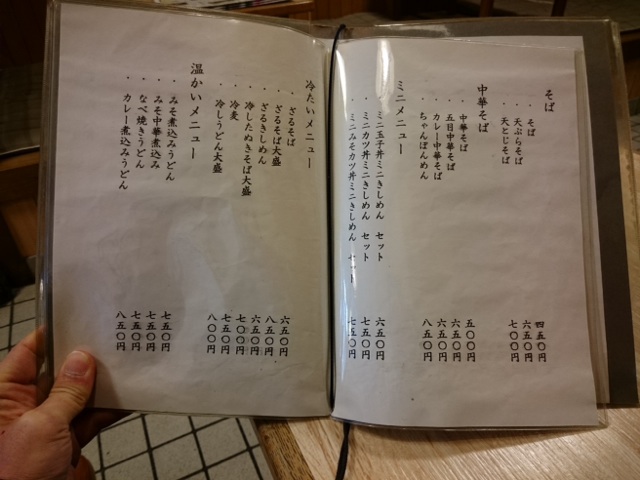 そば
・そば 四五〇円
・天ぷらそば 六五〇円
・天とじそば 七〇〇円
中華そば
・中華そば 五〇〇円
・五目中華そば 六五〇円
・カレー中華そば 六五〇円
・ちゃんぽんめん 八五〇円
ミニメニュー
・ミニ玉子丼ミニきしめん セット 六五〇円
・ミニカツ丼ミニきしめん セット 七五〇円
・ミニみそカツ丼ミニきしめん セット 七五〇円
冷たいメニュー
・ざるそば 六五〇円
・ざるそば大盛 八五〇円
・ざるきしめん 六五〇円
・冷したぬきそば大盛 七〇〇円
・冷麦 七五〇円
・冷しうどん大盛 八〇〇円
温かいメニュー
・みそ煮込みうどん 七五〇円
・みそ中華煮込み 七五〇円
・なべ焼きうどん 七五〇円
・カレー煮込みうどん 八五〇円